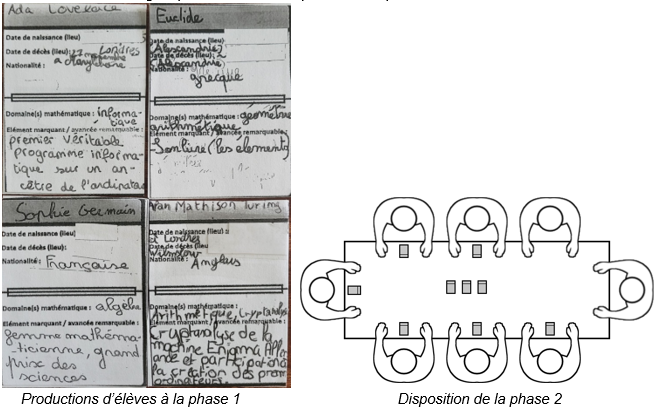 Ada Lovelace
Date de naissance (lieu)
Date de décès (lieu): Londres
à Marylebone
Nationalité :
Domaine(s) mathématique : informa-
tique
Elément marquant / avancée remarquable :
premier véritable
programme informa-
tique sur un an-
cêtre de l'ordinateur
Euclide
Date de naissance (lieu)
(Alexandrie)
Date de décès (lieu) :
(Alexandrie)
Nationalité :
grecque
Domaine(s) mathématique : géométrie
arithmétique
Elément marquant / avancée remarquable :
(les elements)
Sophie Germain
Date de naissance (lieu)
Date de décès (lieu):
Nationalité : Française
Domaine(s) mathématique : algèbre
Elément marquant / avancée remarquable :
femme mathéma-
ticienne, grand
prix des
sciences
Mathison Turing
Date de naissance (lieu) :
à Londres
Date de décès (lieu
Wilmslow
Nationalité : Anglais
Domaine(s) mathématique :
Arithmétique, Cryptanalyse
Elément marquant / avancée remarquable :
Cryptanalyse de la
machine Enigma
et participation à
la création des prem
ordinateurs.
Productions d'élèves à la phase 1
Disposition de la phase 2